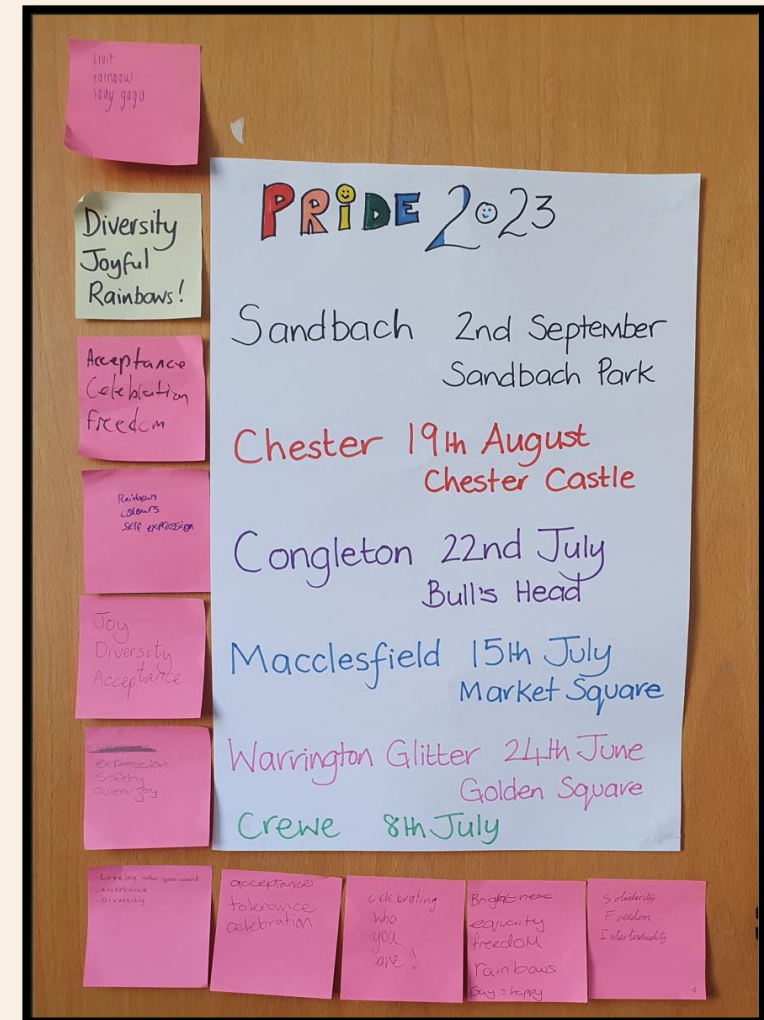 fruit
rainbow
lady gaga
Diversity
Joyful
Rainbows!
Acceptance
Celebration
freedom
Rainbows
colours
Self expression
Joy
Diversity
Acceptance
expression
Safety
Queer joy
PRIDE 2023
Sandbach 2nd September
Sandbach Park
Chester 19th August
Chester Castle
Congleton 22nd July
Bull's Head
Macclesfield 15th July
Market Square
Warrington Glitter 24th June
Golden Square
Crewe 8th July
who you want
acceptance
Diversity
acceptance
tolerance
celebration
celebrating
who
you
are!
Brightness
equality
freedom
rainbows
Gay = happy
Solidarity
Freedom